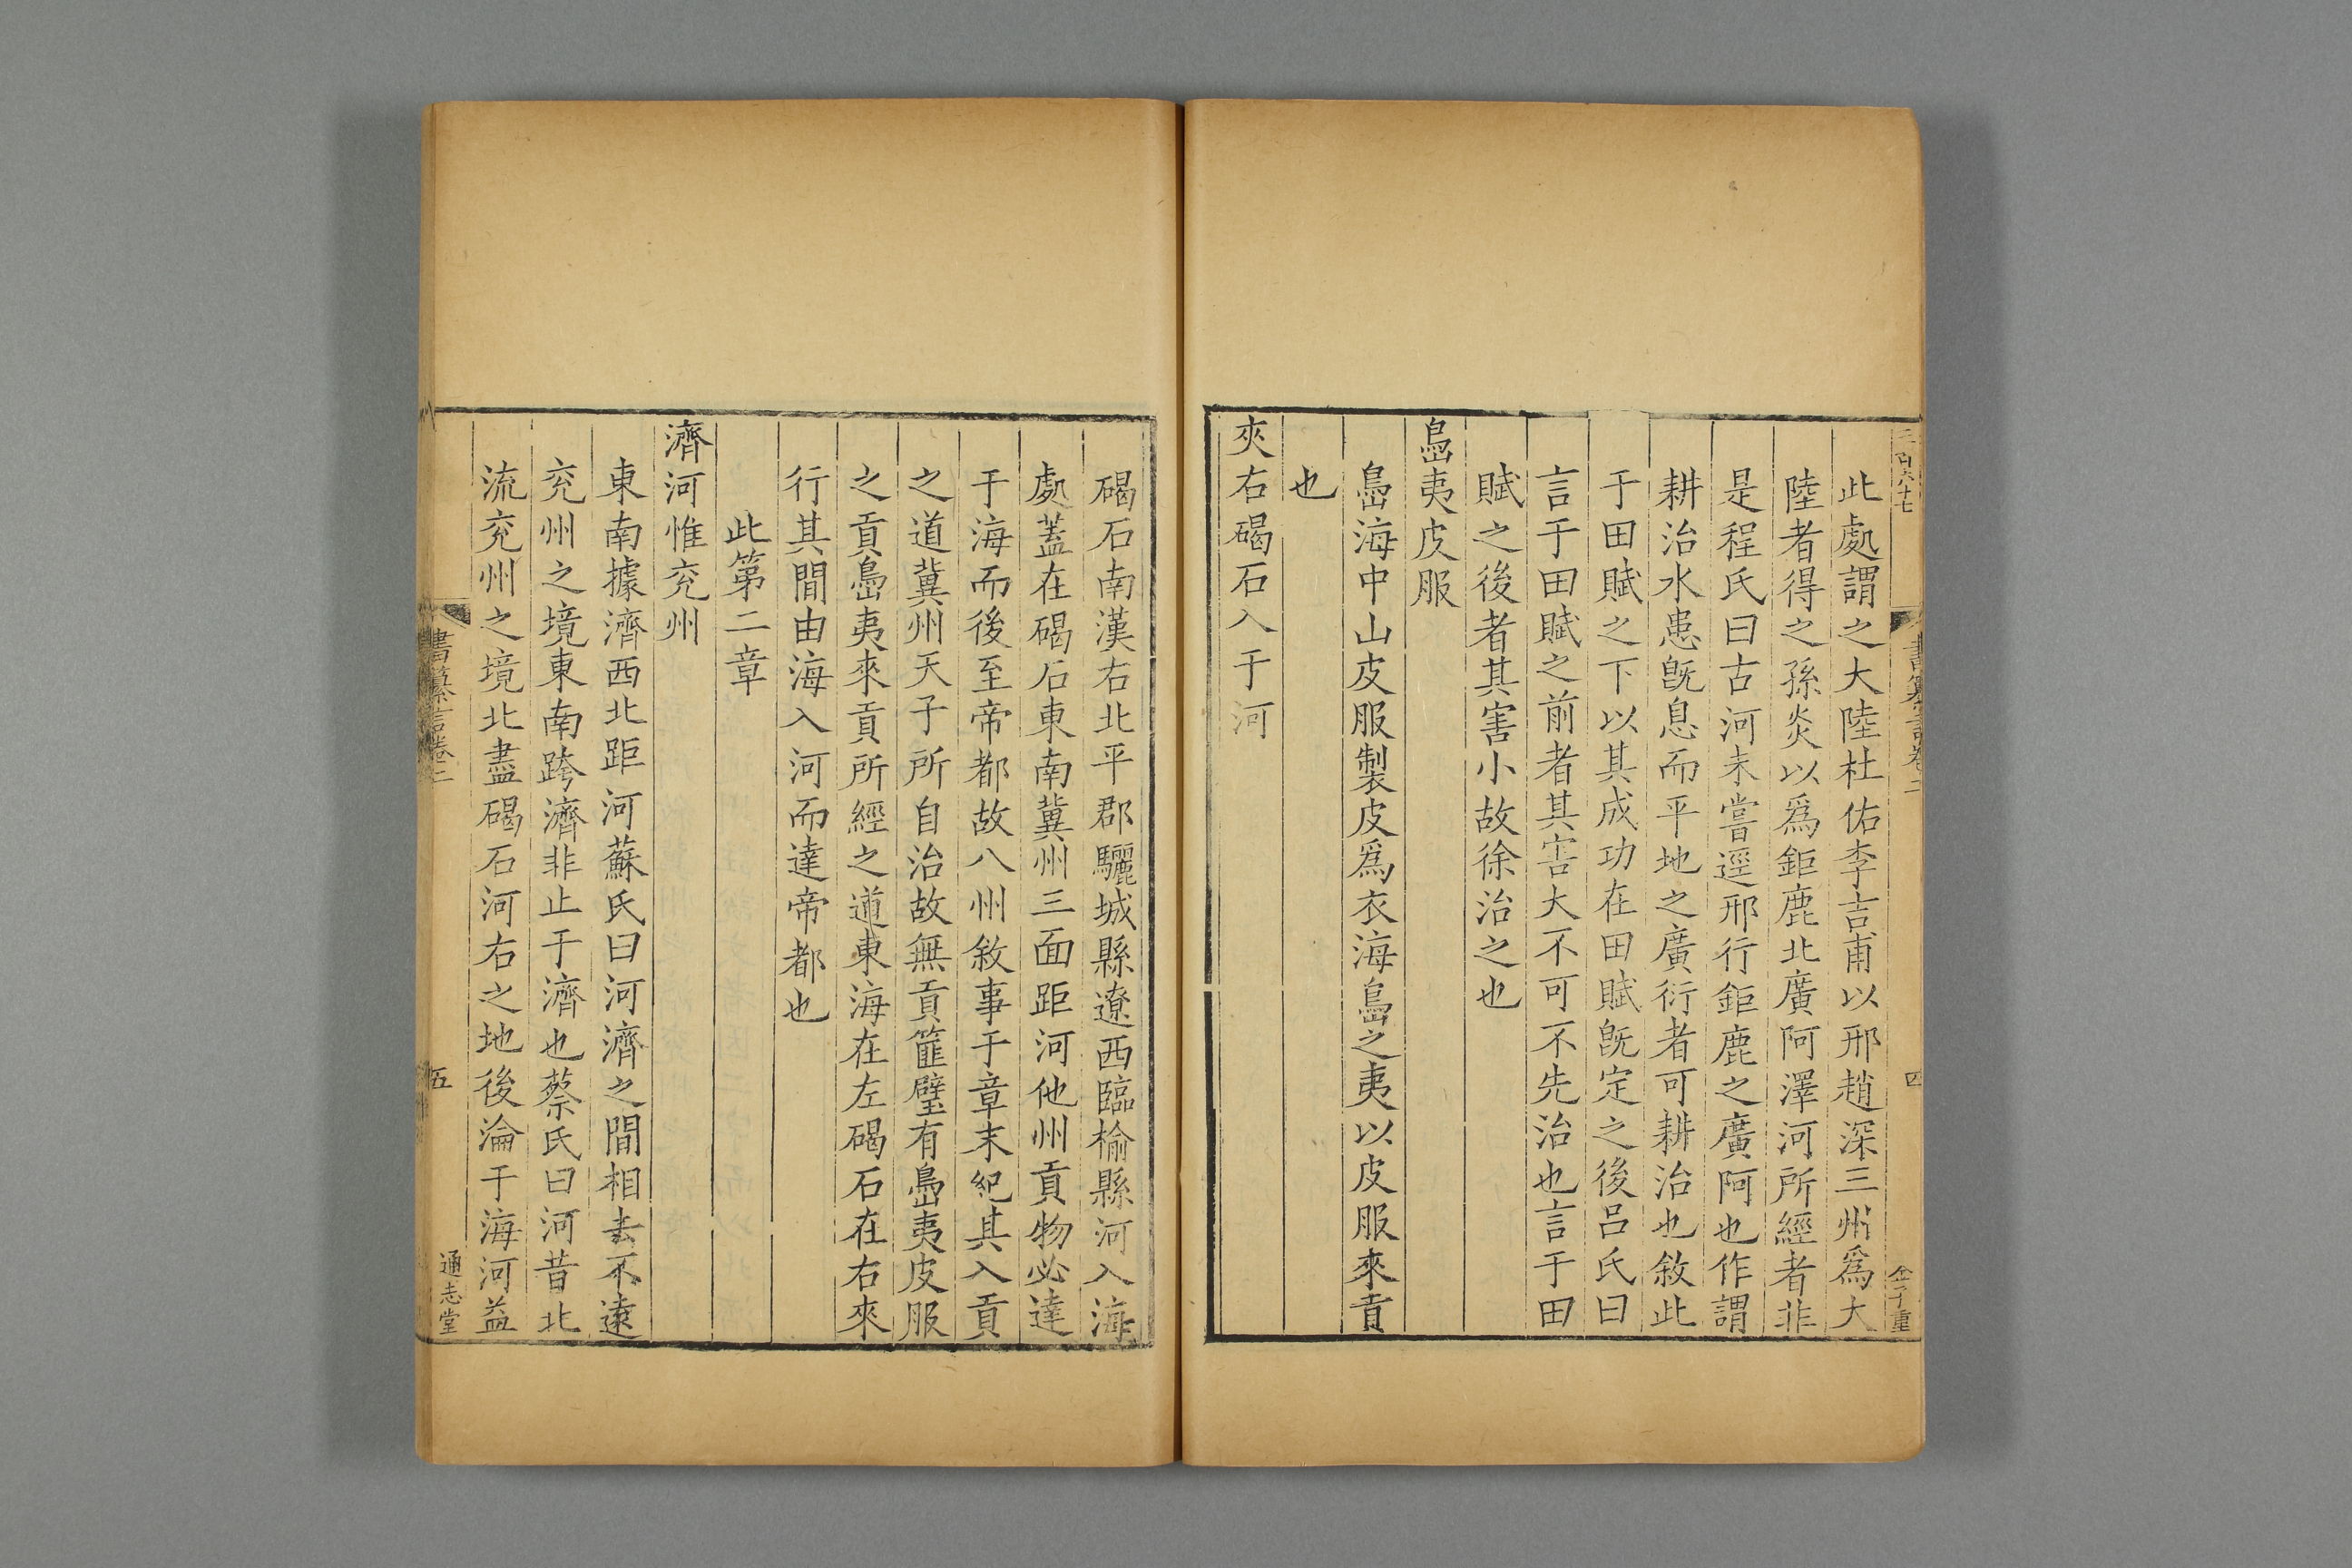 三百六十七
書纂言卷二
四
金子重
此處謂之大陸杜佑李吉甫以邢趙深三州爲大
陸者得之孫炎以爲鉅鹿北廣阿澤河所經者非
是程氏曰古河未嘗逕邢行鉅鹿之廣阿也作謂
耕治水患旣息而平地之廣衍者可耕治也敘此
于田賦之下以其成功在田賦旣定之後呂氏曰
言于田賦之前者其害大不可不先治也言于田
賦之後者其害小故徐治之也
島夷皮服
島海中山皮服製皮爲衣海島之夷以皮服來貢
也
夾右碣石入于河
碣石南漢右北平郡驪城縣遼西臨榆縣河入海
處蓋在碣石東南冀州三面距河他州貢物必達
于海而後至帝都故八州敘事于章末紀其入貢
之道冀州天子所自治故無貢篚璧有島夷皮服
之貢島夷來貢所經之道東海在左碣石在右來
行其間由海入河而達帝都也
此第二章
濟河惟兖州
東南據濟西北距河蘇氏曰河濟之間相去不遠
兖州之境東南跨濟非止于濟也蔡氏曰河昔北
流兖州之境北盡碣石河右之地後淪于海河益
書纂言卷二
五
通志堂